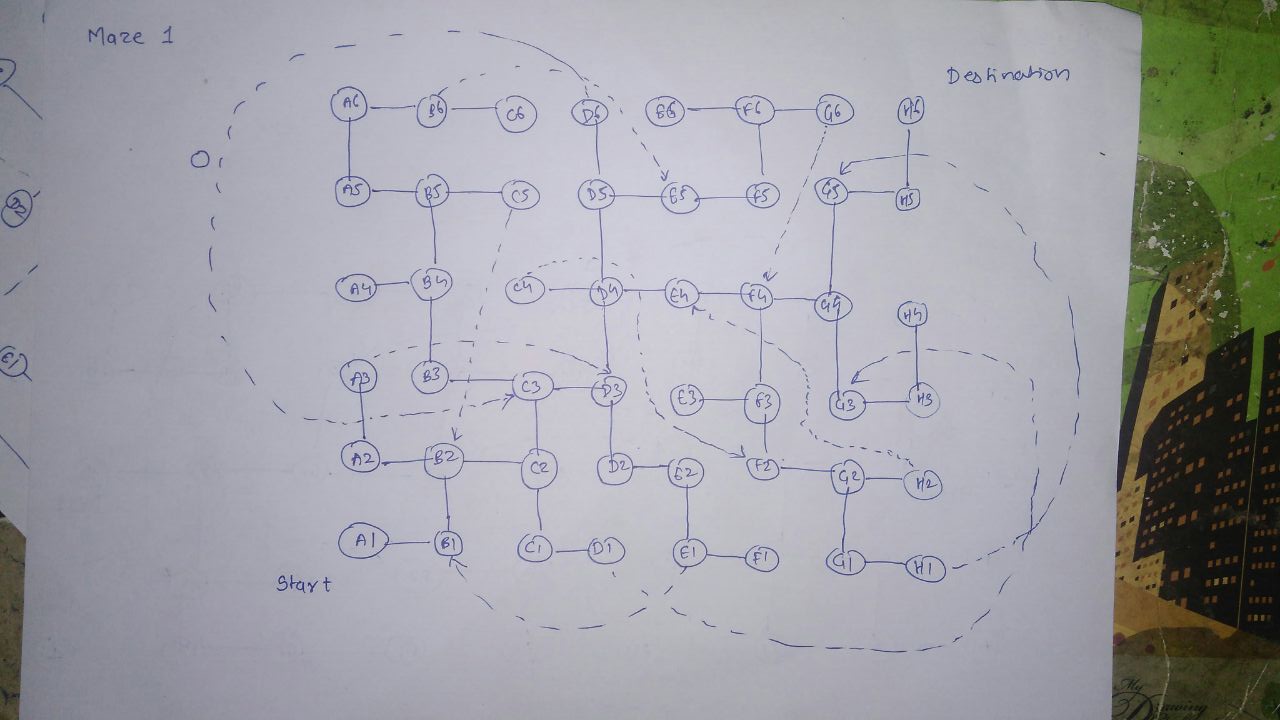 Maze 1
Destination
A6 B6 C6 D6 E6 F6 G6 H6
A5 B5 C5 D5 E5 F5 G5 H5
A4 B4 C4 D4 E4 F4 G4 H4
A3 B3 C3 D3 E3 F3 G3 H3
A2 B2 C2 D2 E2 F2 G2 H2
A1 B1 C1 D1 E1 F1 G1 H1
Start
D2
E1
My
Drawing